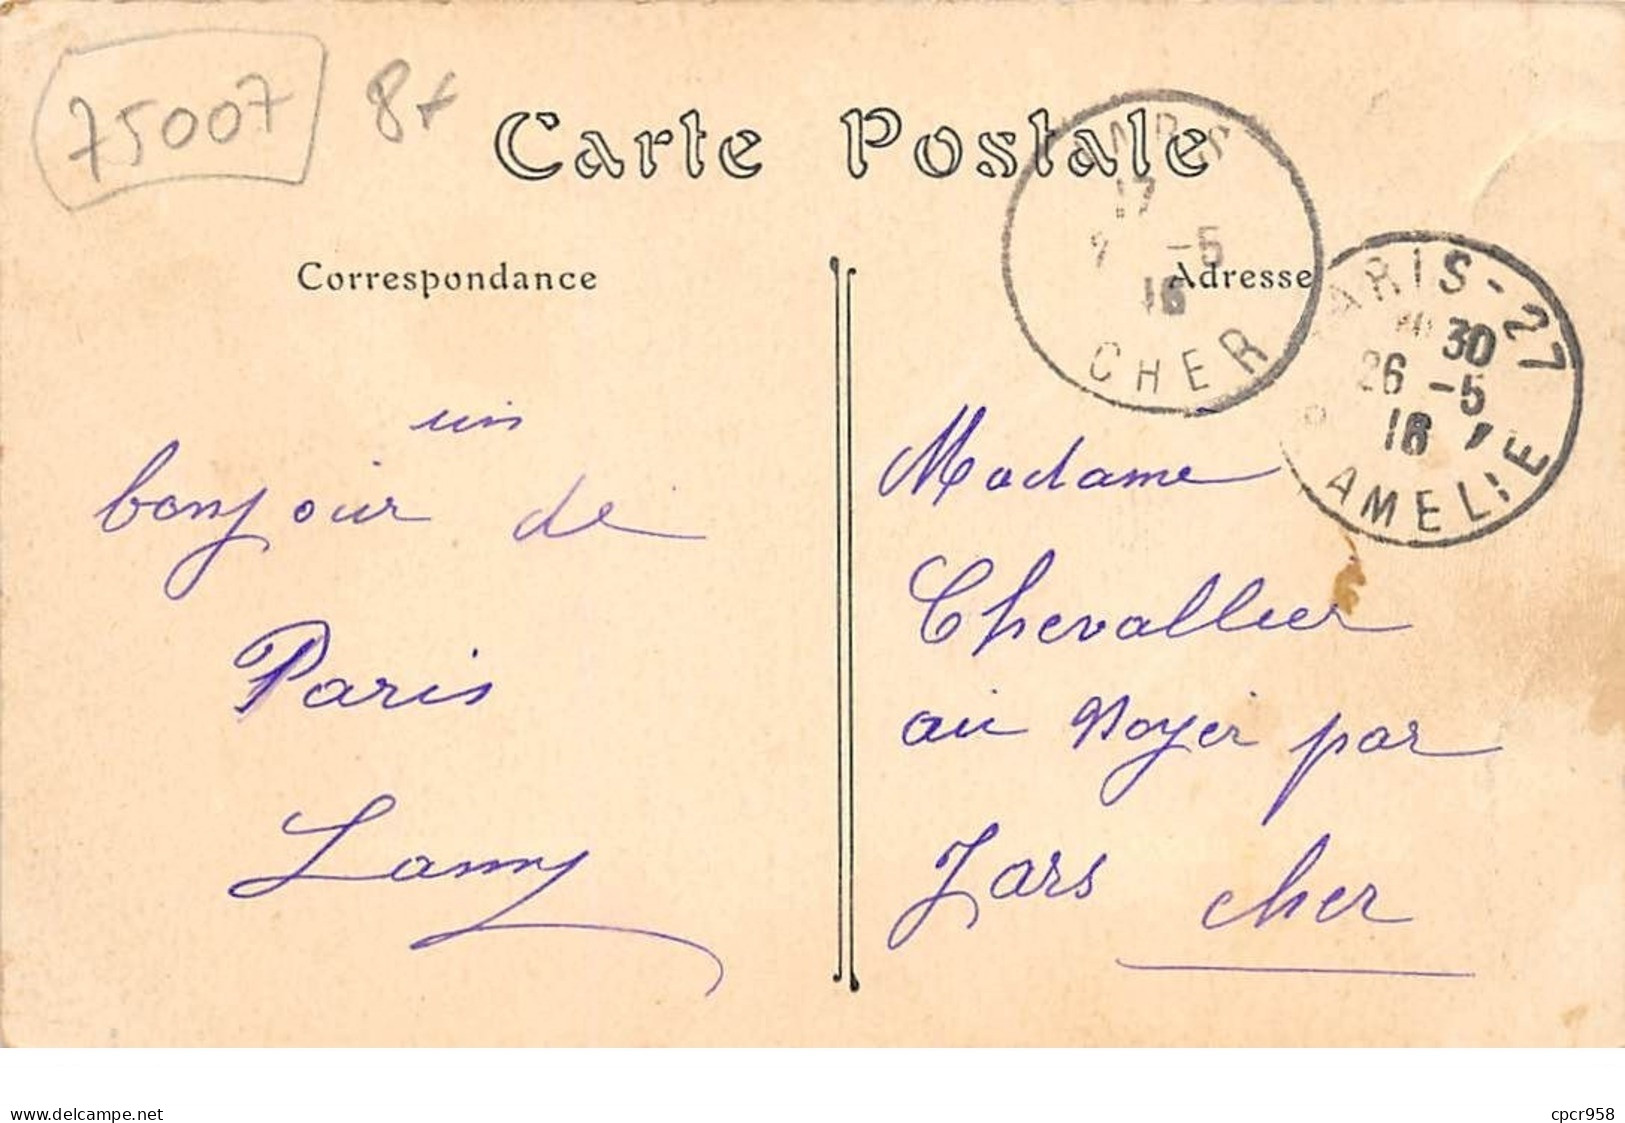 75007 8+
Carte Postale
Correspondance
Adresse
JARS
17
-5
16
CHER
PARIS-27
30
26-5
16
AMELIE
un
bonjour de
Paris
Lamy
Madame
Chevallier
au Noyer par
Jars cher
www.delcampe.net
cpcr958